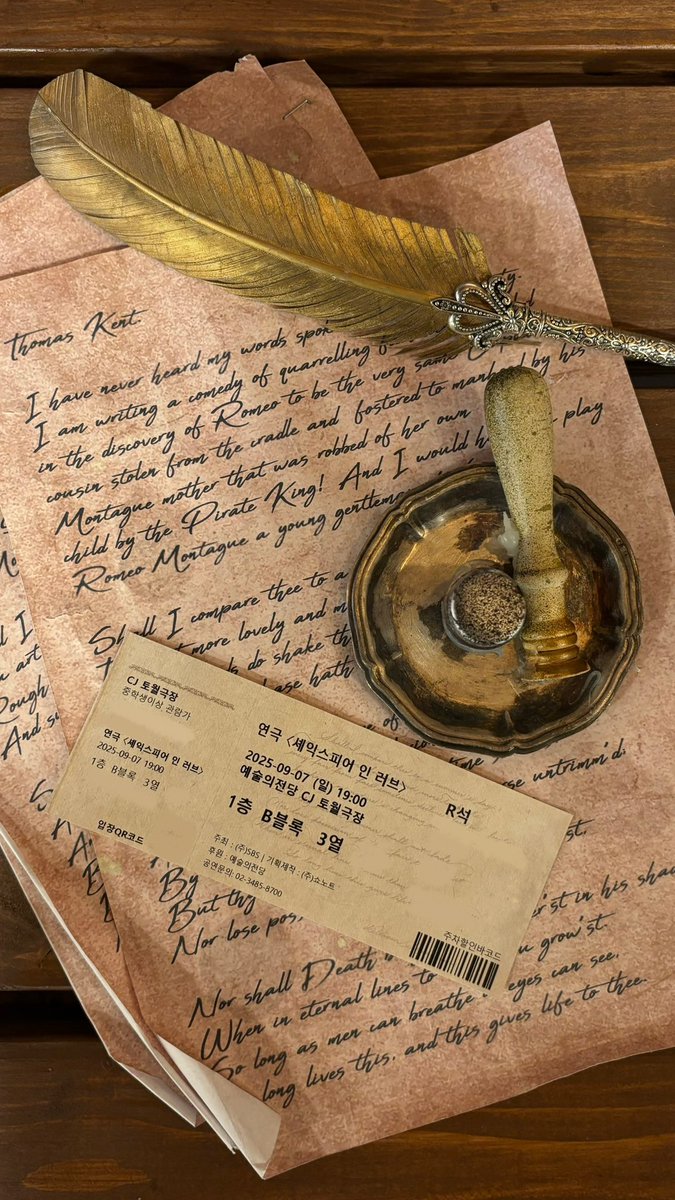 Thomas Kent
I have never heard my words spok
I am writing a comedy of quarrelling f
in the discovery of Romeo to be the very same
cousin stolen from the cradle and fostered to manhood by his
Montague mother that was robbed of her own
child by the Pirate King! And I would h play
Romeo Montague a young gentleman
Shall I compare thee to a
more lovely and m
do shake th
ase hath
CJ 토월극장
중학생이상 관람가
연극 <셰익스피어 인 러브>
2025-09-07 19:00
1층 B블록 3열
입장QR코드
연극 <셰익스피어 인 러브>
2025-09-07 (일) 19:00
예술의전당 CJ 토월극장
R석
1층 B블록 3열
주최 : (주)SBS | 기획제작 : (주)쇼노트
후원 : 예술의전당
공연문의: 02-3485-8700
주차할인바코드
se untrimm'd;
By
But thy
Nor lose pos
er'st in his shad
Nor shall Death b
u grow'st.
When in eternal lines to
So long as men can breathe or eyes can see,
long lives this, and this gives life to thee.